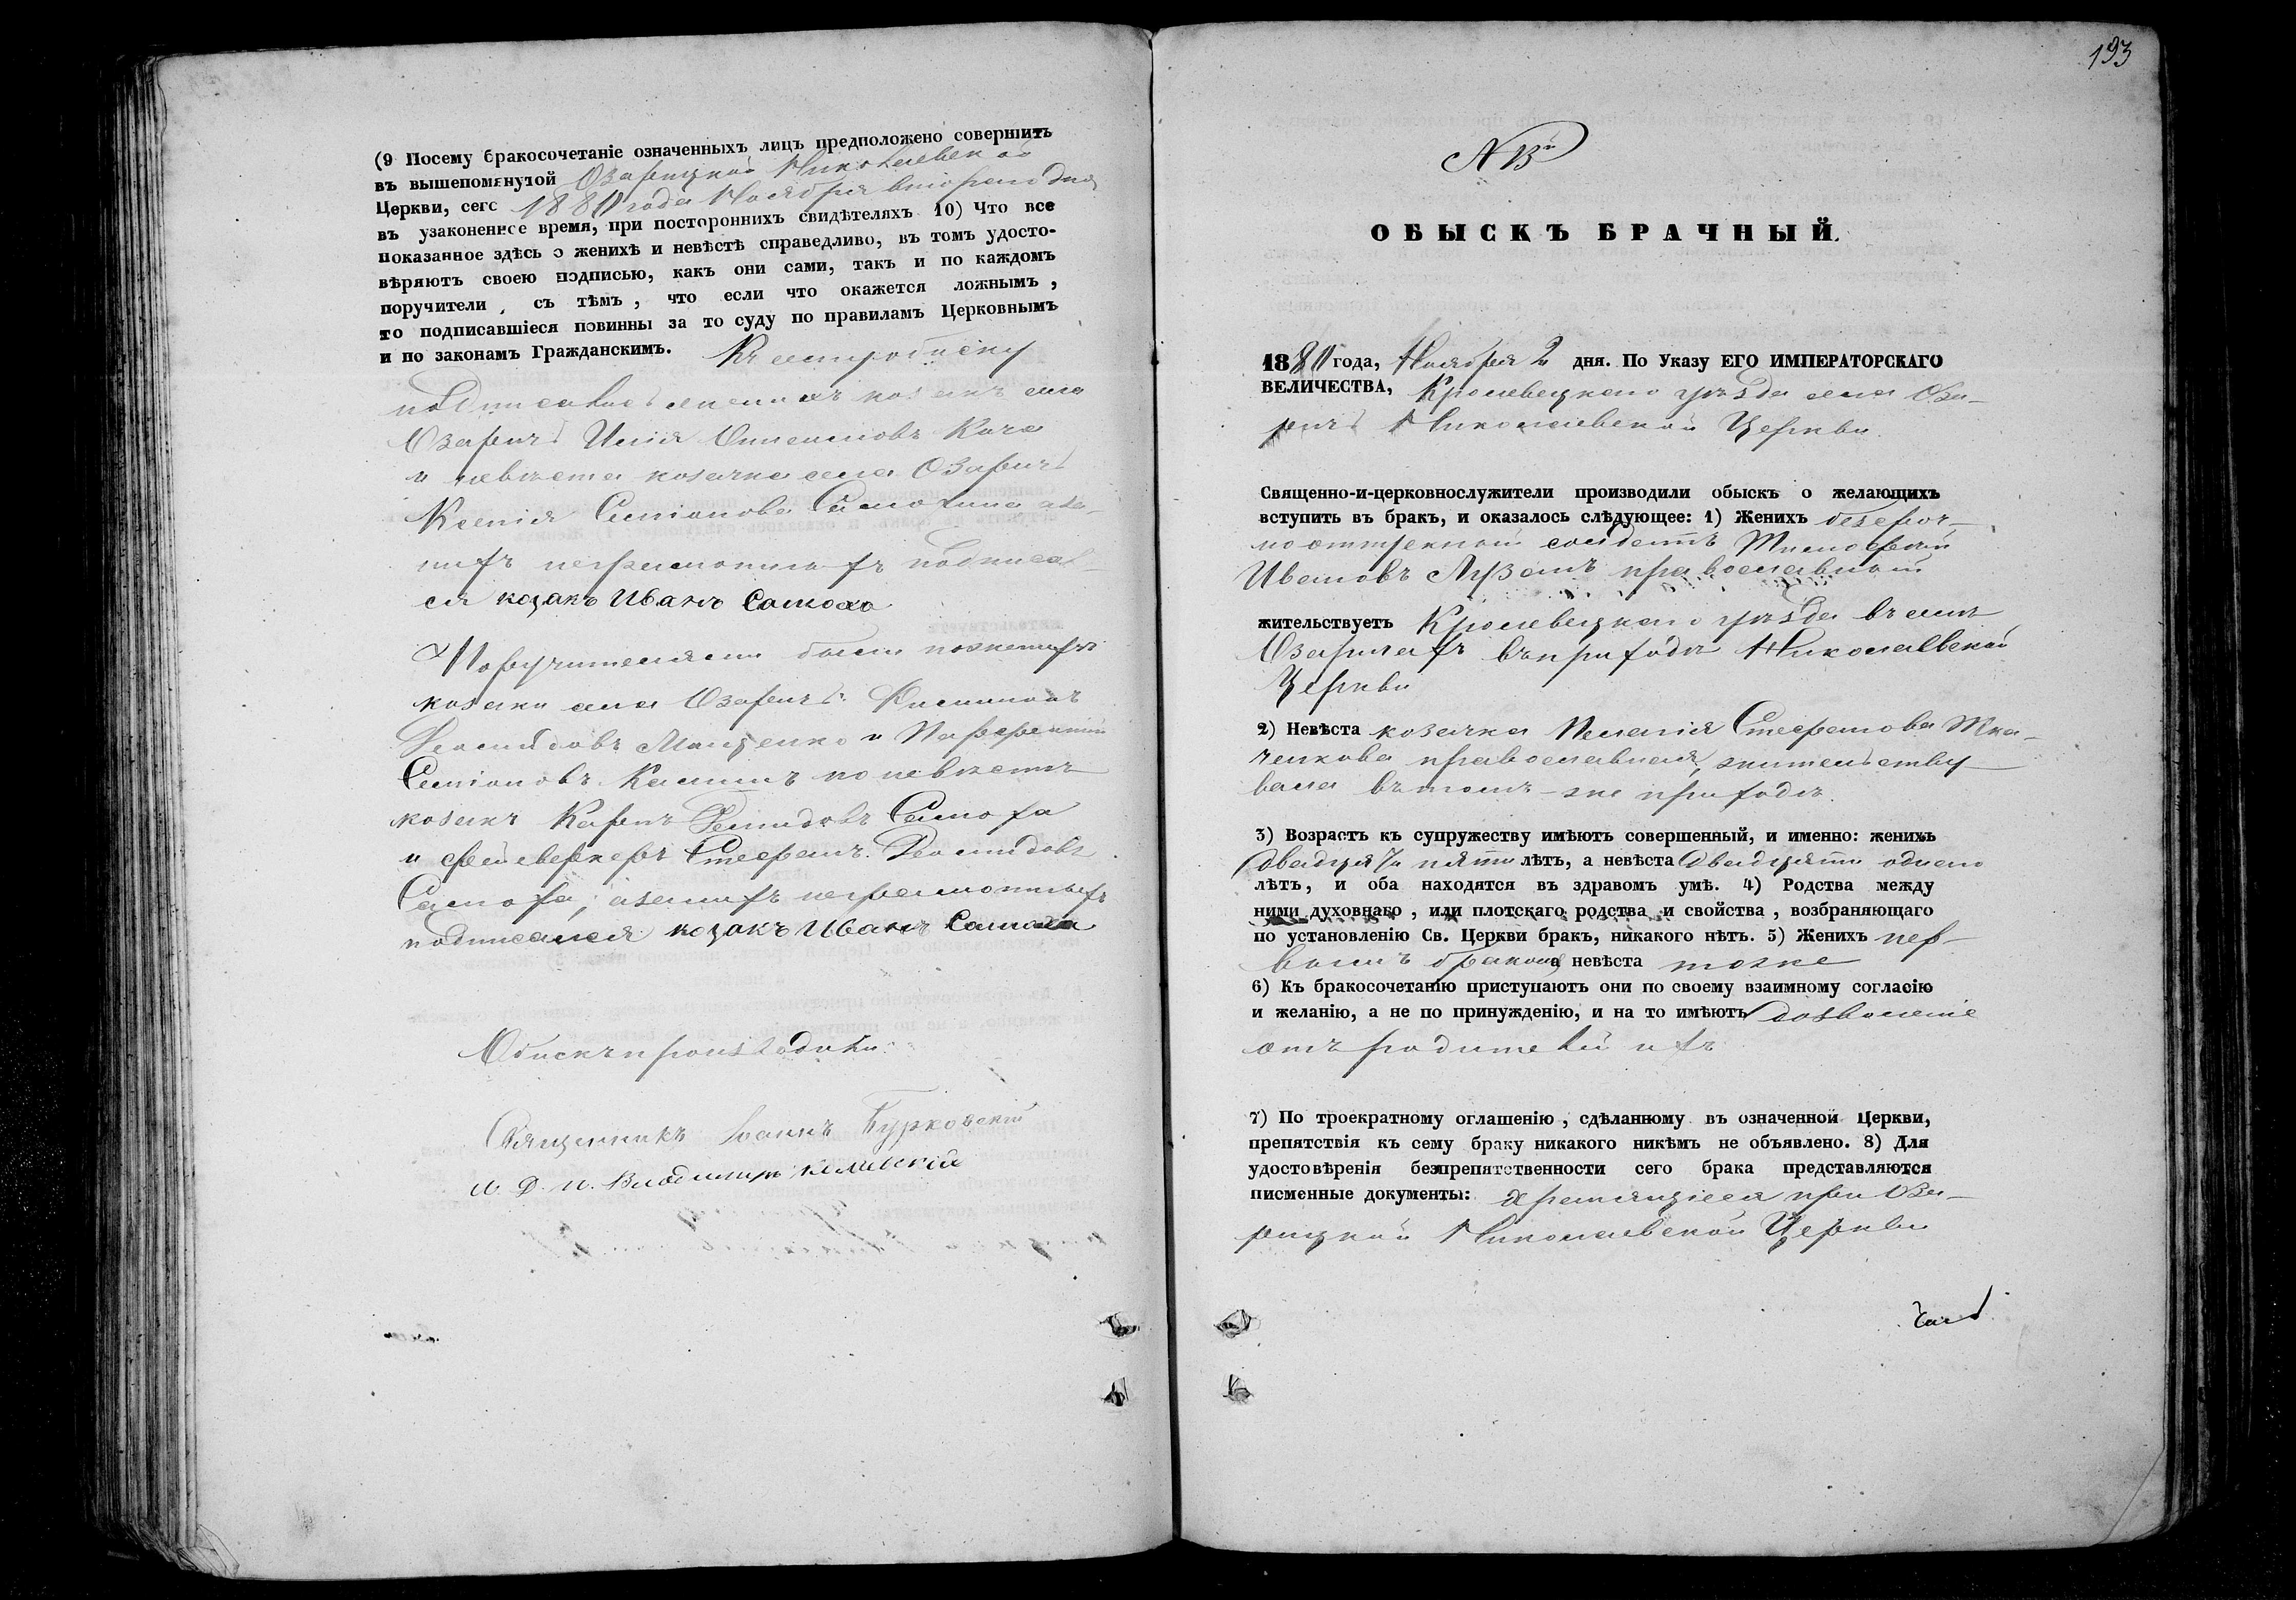 (9 Посему бракосочетаніе означенныхъ лицъ предположено совершить
въ вышепомянутой Озарицкой Николаевской
Церкви, сего 1880 года Ноября второго дня
въ узаконенное время, при постороннихъ свидѣтеляхъ 10) Что все
показанное здѣсь о женихѣ и невѣстѣ справедливо, въ томъ удосто-
вѣряютъ своею подписью, какъ они сами, такъ и по каждомъ
поручители, съ тѣмъ, что если что окажется ложнымъ,
то подписавшіеся повинны за то суду по правиламъ Церковнымъ
и по законамъ Гражданскимъ. Къ сему обыску
подписались женихъ козакъ села
Озаричъ Илія Кача
и невѣста козачка села Озаричъ
Ксенія Симіонова Самохина а за
нихъ неграмотныхъ подписал-
ся козакъ Иванъ Самоха
Поручителями были по женихѣ
козаки села Озаричъ: Филиппъ
Демидовъ Маценко и Парфентій
Симіоновъ по невѣстѣ
козакъ Карпъ Демидовъ Самоха
и фейерверкеръ Стефанъ Демидовъ
Самоха, а за нихъ неграмотныхъ
подписался козакъ Иванъ Самоха
Обыскъ производили:
Священникъ Іоаннъ Бурковскій
И. Д. п. Владимиръ
193
N 13й
ОБЫСКЪ БРАЧНЫЙ.
1880 года, Ноября 2 дня. По Указу ЕГО ИМПЕРАТОРСКАГО
ВЕЛИЧЕСТВА, Кролевецкаго уѣзда села Оза-
ричъ Николаевской Церкви
Священно-и-церковнослужители производили обыскъ о желающихъ
вступить въ бракъ, и оказалось слѣдующее: 1) Женихъ безсроч-
ноотпускной солдатъ Тимофей
Ивановъ Лузанъ православный
жительствуетъ Кролевецкаго уѣзда въ селѣ
Озаричахъ въ приходѣ Николаевской
Церкви
2) Невѣста козачка Пелагія Стефанова Тка-
ченкова православная, жительству-
вала въ томъ-же приходѣ.
3) Возрастъ къ супружеству имѣютъ совершенный, и именно: женихъ
двадцати пяти лѣтъ, а невѣста двадцати одного
лѣтъ, и оба находятся въ здравомъ умѣ. 4) Родства между
ними духовнаго, или плотскаго родства и свойства, возбраняющаго
по установленію Св. Церкви бракъ, никакого нѣтъ. 5) Женихъ пер-
вымъ бракомъ а невѣста тоже
6) Къ бракосочетанію приступаютъ они по своему взаимному согласію
и желанію, а не по принужденію, и на то имѣютъ дозволеніе
отъ родителей ихъ
7) По троекратному оглашенію, сдѣланному въ означенной Церкви,
препятствія къ сему браку никакого никѣмъ не объявлено. 8) Для
удостовѣренія безпрепятственности сего брака представляются
писменные документы: хранящіеся при Оза-
рицкой Николаевской Церкви